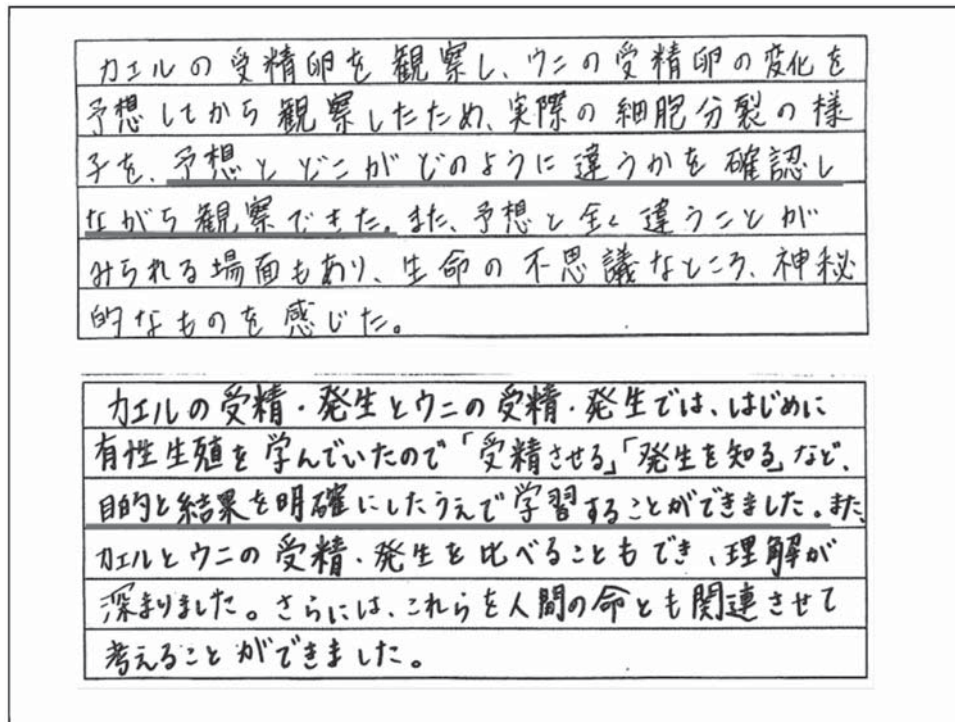 カエルの受精卵を観察し、ウニの受精卵の変化を
予想してから観察したため、実際の細胞分裂の様
子を、予想とどこがどのように違うかを確認し
ながら観察できた。また、予想と全く違うことが
みられる場面もあり、生命の不思議なところ、神秘
的なものを感じた。
カエルの受精・発生とウニの受精・発生では、はじめに
有性生殖を学んでいたので「受精させる」「発生を知る」など、
目的と結果を明確にしたうえで学習することができました。また、
カエルとウニの受精・発生を比べることもでき、理解が
深まりました。さらには、これらを人間の命とも関連させて
考えることができました。